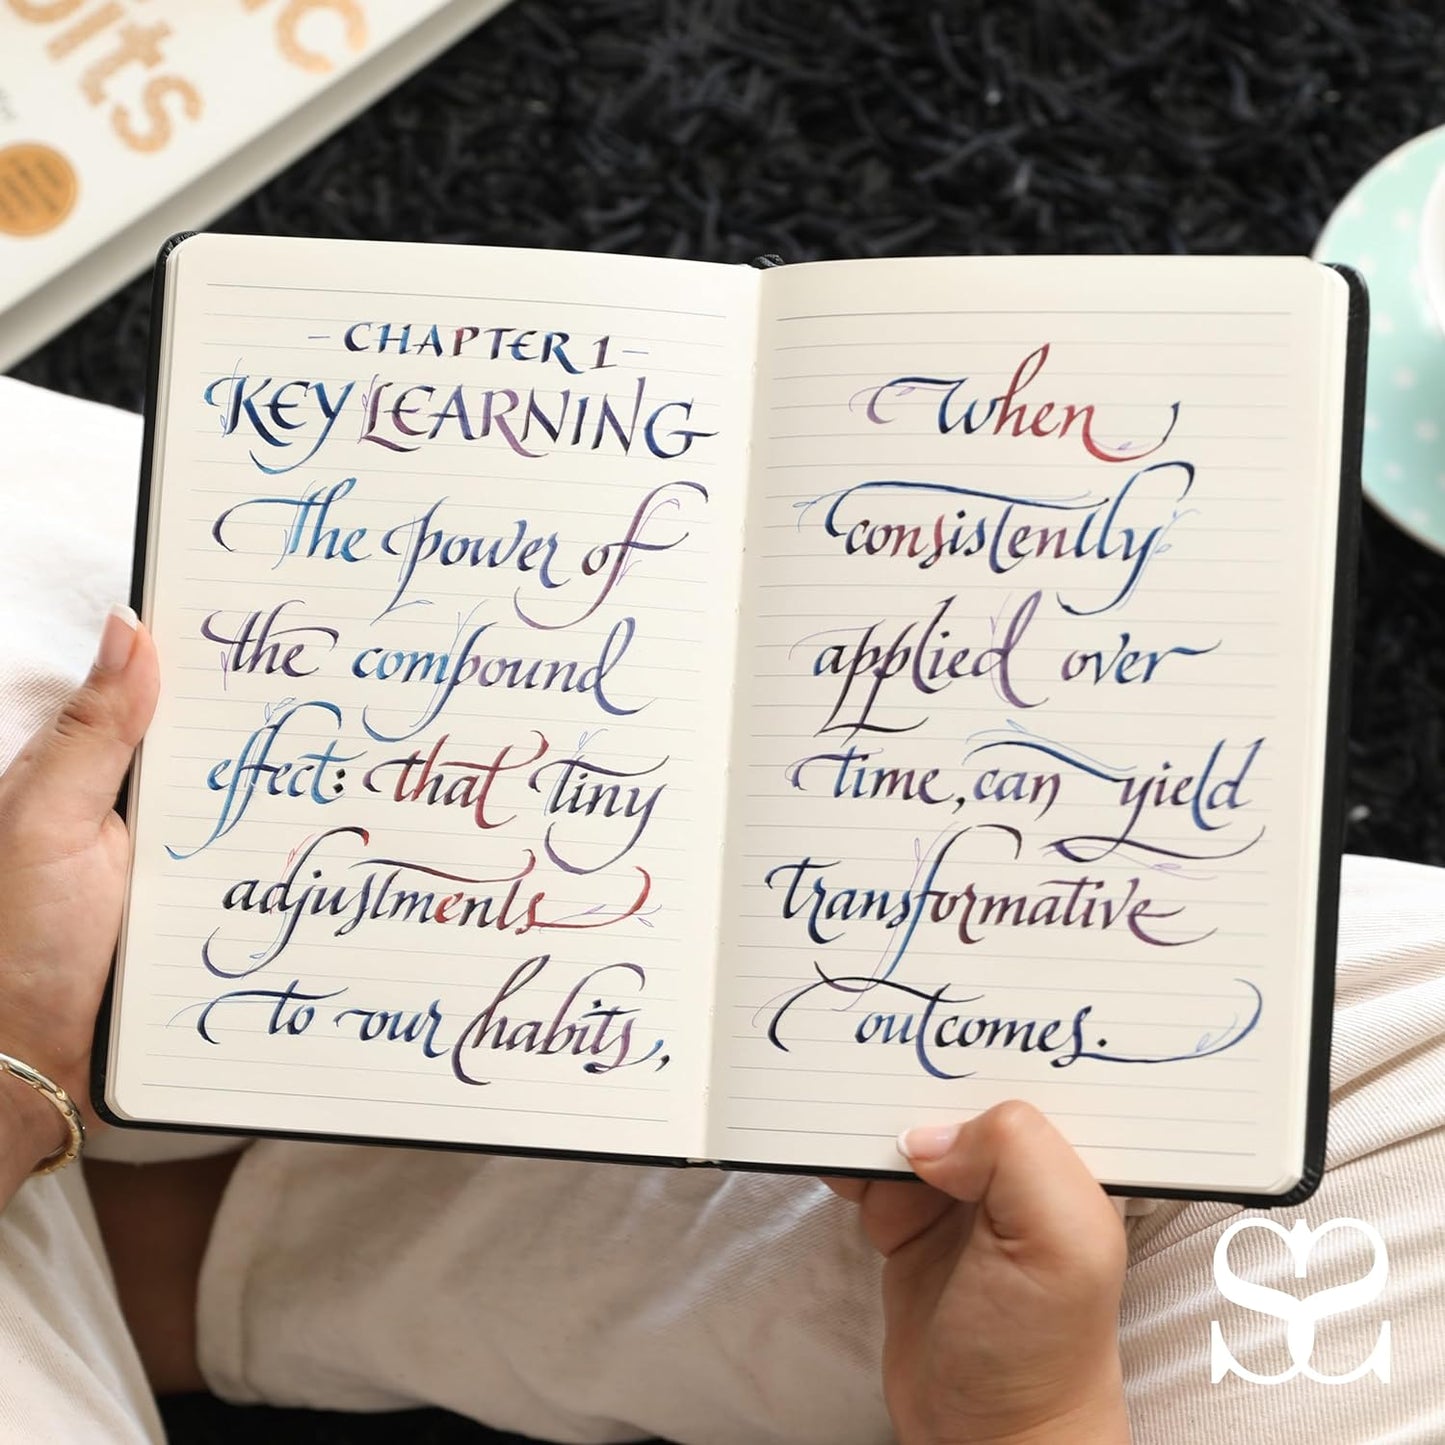 - CHAPTER 1 -
KEY LEARNING
The power of
the compound
effect: that tiny
adjustments
to our habits,
When
consistently
applied over
time, can yield
transformative
outcomes.